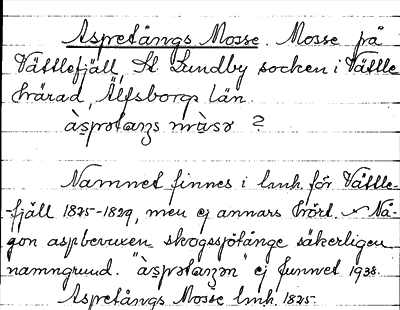 Aspretångs Mosse. Mosse på
Vättlefjäll, St. Lundby socken i Vättle
härad, Älfsborgs län.
àsprətaŋs màsə ?
Namnet finnes i lmh. för Vättle-
-fjäll 1825-1829, men ej annars hört. Nå-
gon aspbevuxen skogssjötånge säkerligen
namngrund. "àsprətaŋən" ej funnet 1938.
Aspretångs Mosse lmh. 1825.